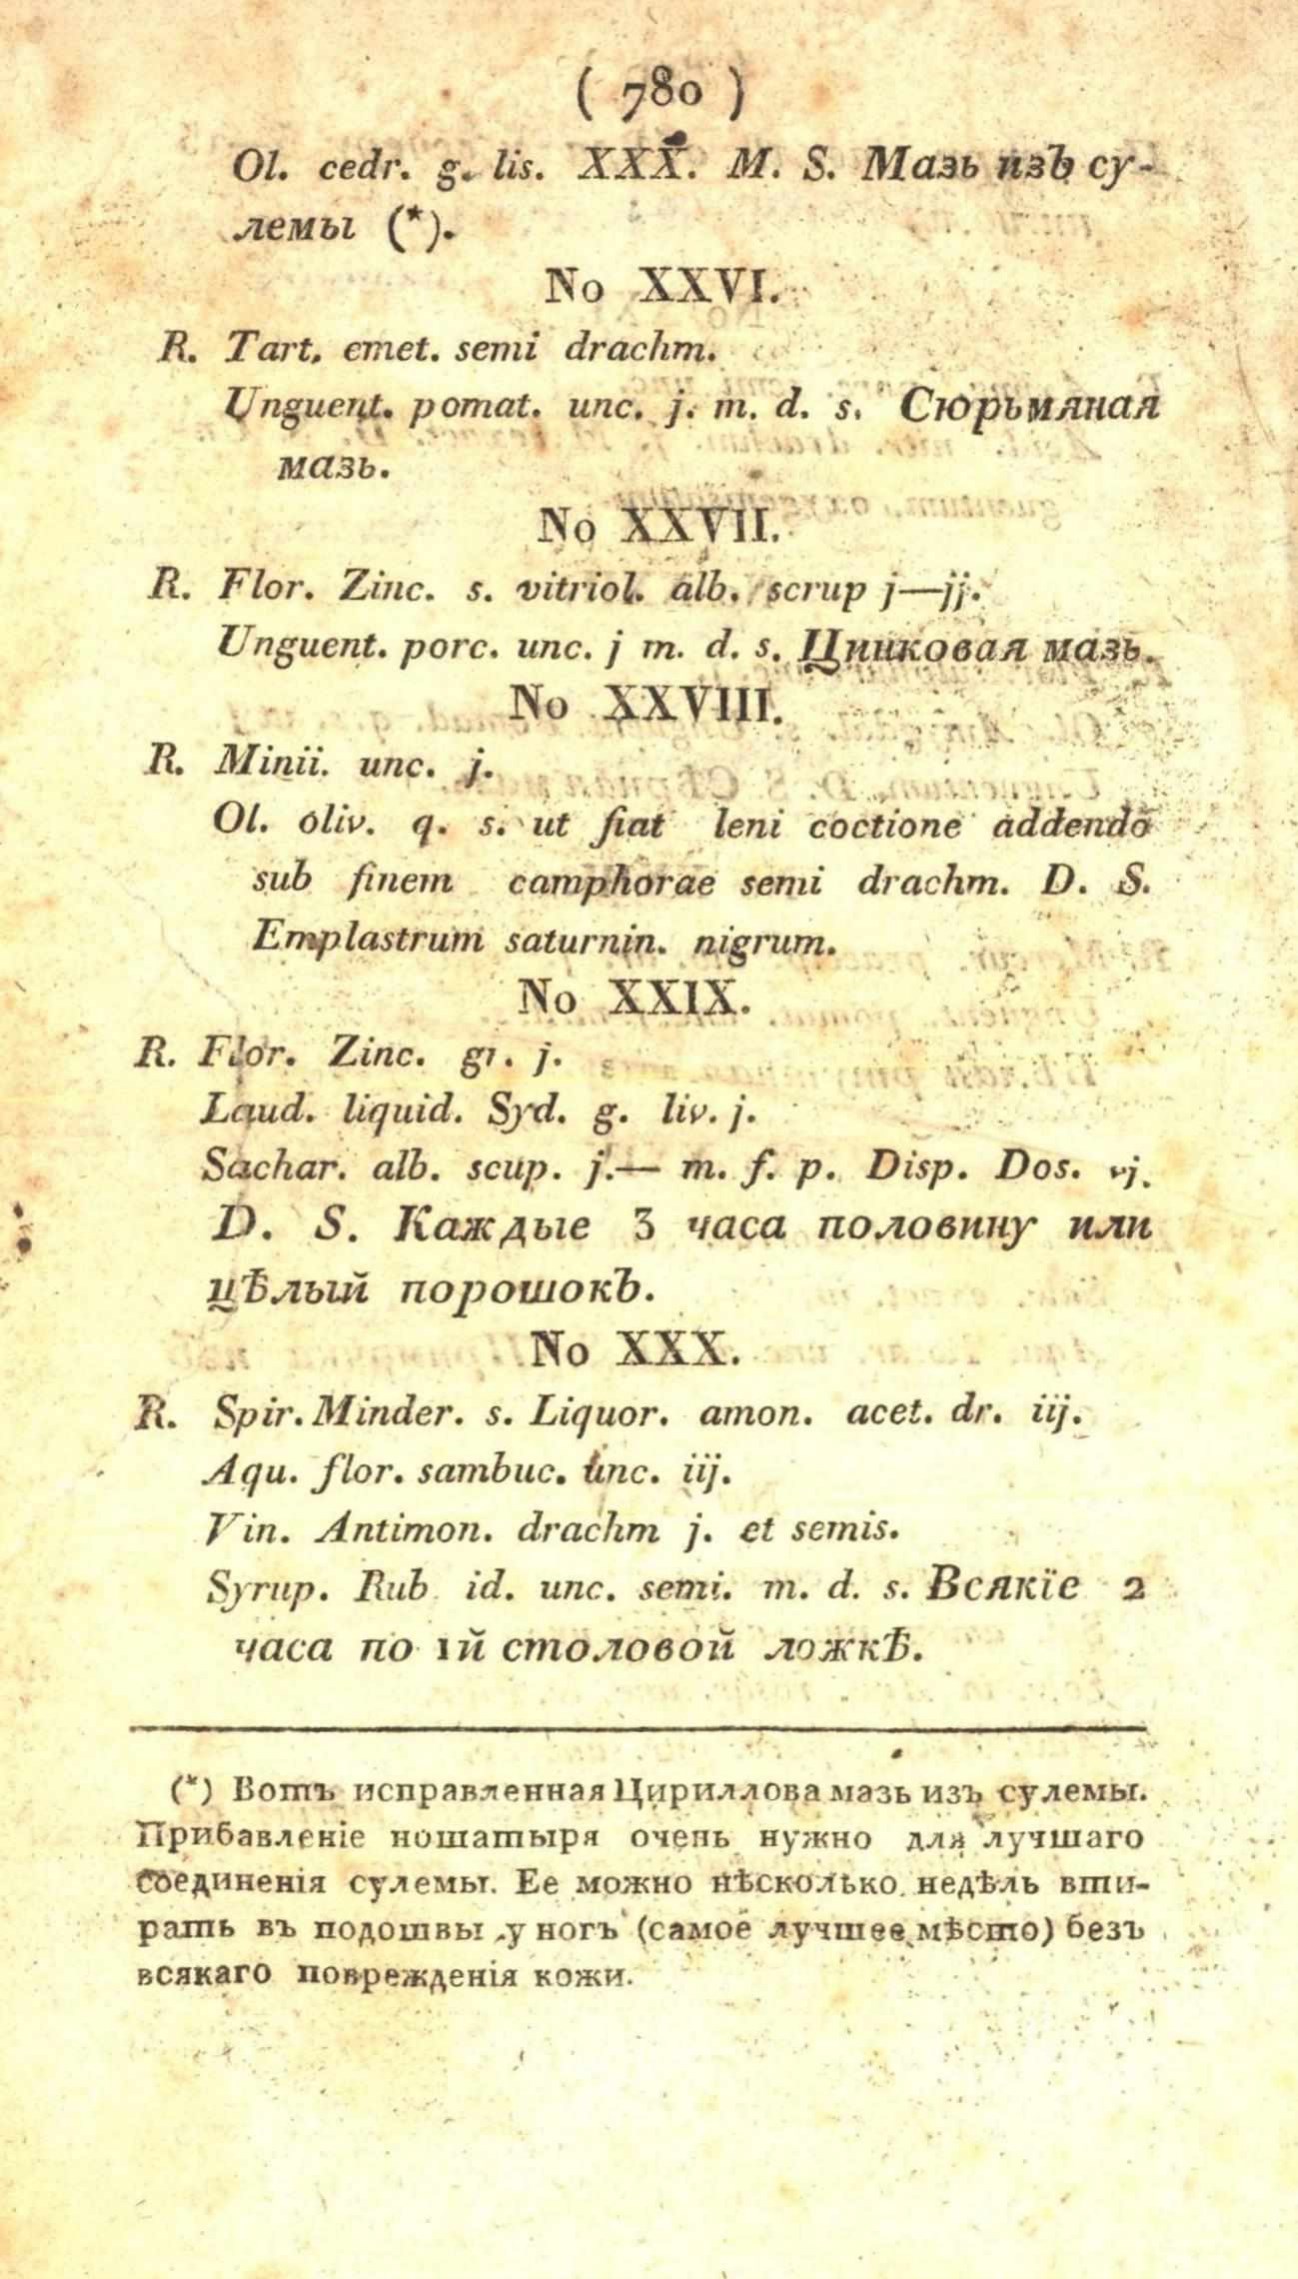 ( 780 )
Ol. cedr. g. lis. XXX. M. S. Мазь изъ су-
лемы (*).
No XXVI.
R. Tart. emet. semi drachm.
Unguent. pomat. unc. j. m. d. s. Сюрьмяная
мазь.
No XXVII.
R. Flor. Zinc. s. vitriol. alb. scrup j—jj.
Unguent. porc. unc. j m. d. s. Цинковая мазь.
No XXVIII.
R. Minii. unc. j.
Ol. oliv. q. s. ut fiat leni coctione addendo
sub finem camphorae semi drachm. D. S.
Emplastrum saturnin. nigrum.
No XXIX.
R. Flor. Zinc. gr. j.
Laud. liquid. Syd. g. liv. j.
Sachar. alb. scup. j.— m. f. p. Disp. Dos. vj.
D. S. Каждые 3 часа половину или
цѣлый порошокъ.
No XXX.
R. Spir. Minder. s. Liquor. amon. acet. dr. iij.
Aqu. flor. sambuc. unc. iij.
Vin. Antimon. drachm j. et semis.
Syrup. Rub id. unc. semi. m. d. s. Всякїе 2
часа по 1й столовой ложкѣ.
(*) Вотъ исправленная Цириллова мазь изъ сулемы.
Прибавленіе нашатыря очень нужно для лучшаго
соединенія сулемы. Ее можно нѣсколько недѣль вти-
рать въ подошвы у ногъ (самое лучшее мѣсто) безъ
всякаго поврежденія кожи.